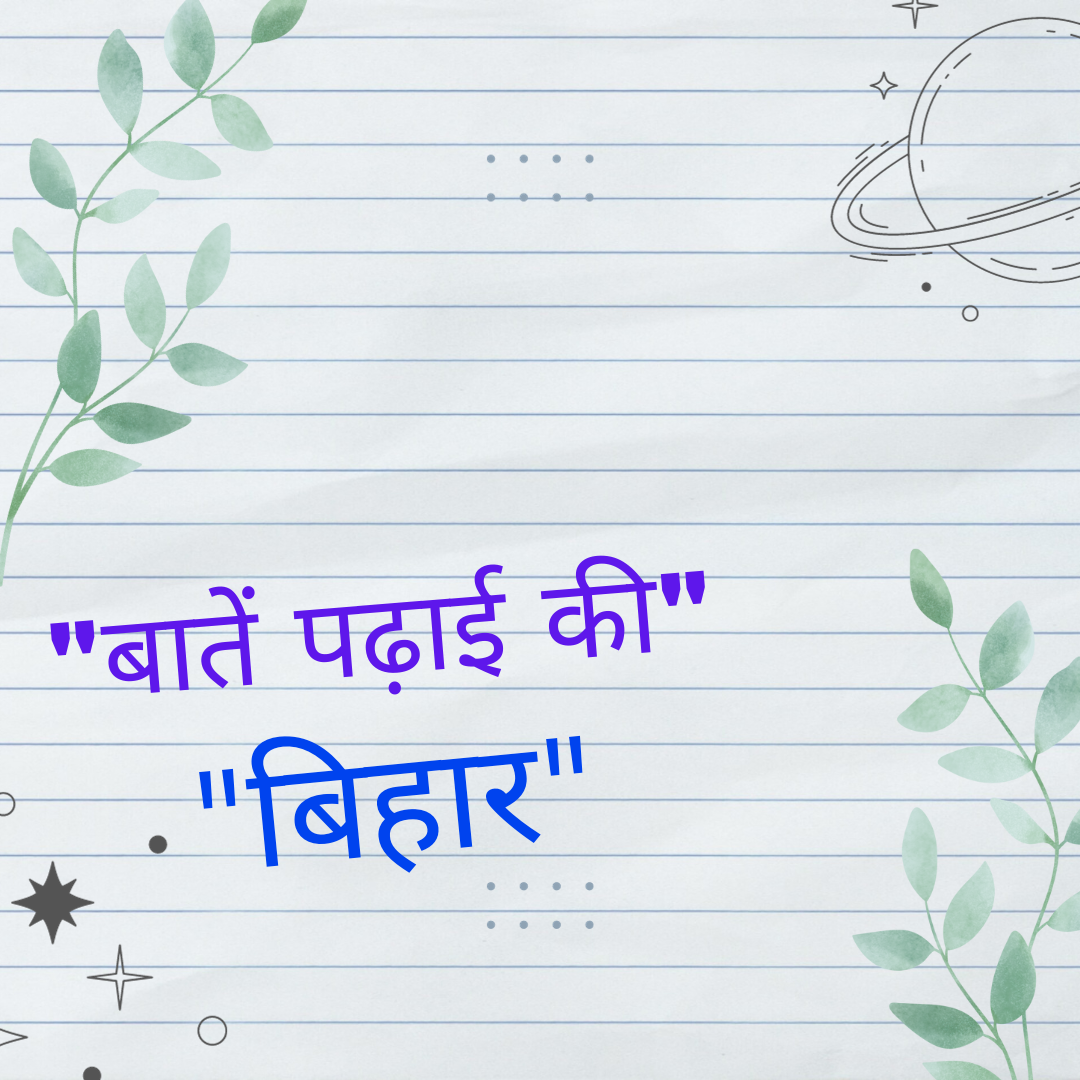 "बातें पढ़ाई की"
"बिहार"